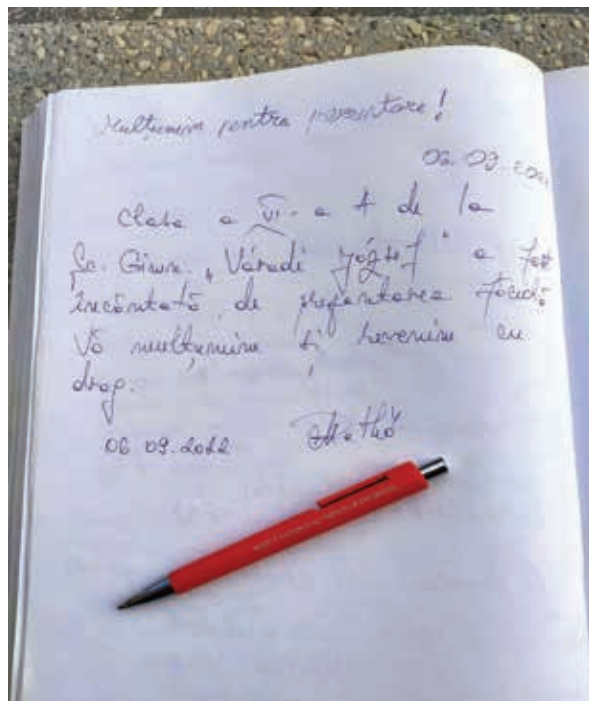 Mulțumim pentru prezentare!
02.09.2022
Clasa a VI-a A de la
Șc. Gimn. „Váradi József" a fost
încântată de prezentarea făcută
Vă mulțumim și revenim cu
drag.
06 09.2022